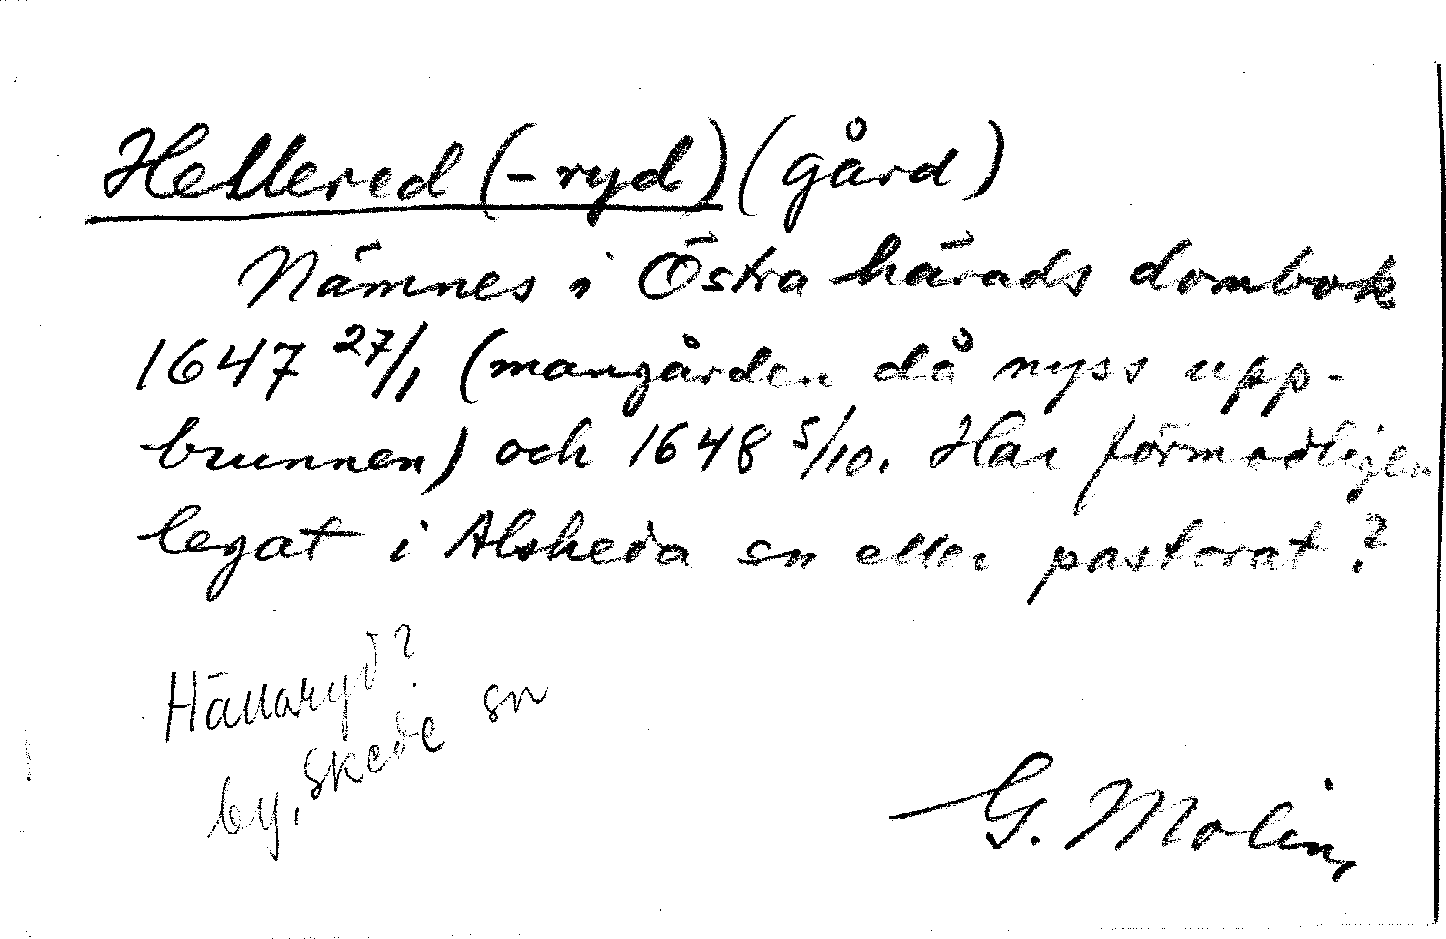 Hellered (-ryd) (gård)
Nämnes i Östra härads dombok
1647 27/1 (mangården då nyss upp-
brunnen) och 1648 5/10. Har förmodligen
legat i Alsheda sn eller pastorat?
Hällaryd?
by, Skede sn
G. Molin,